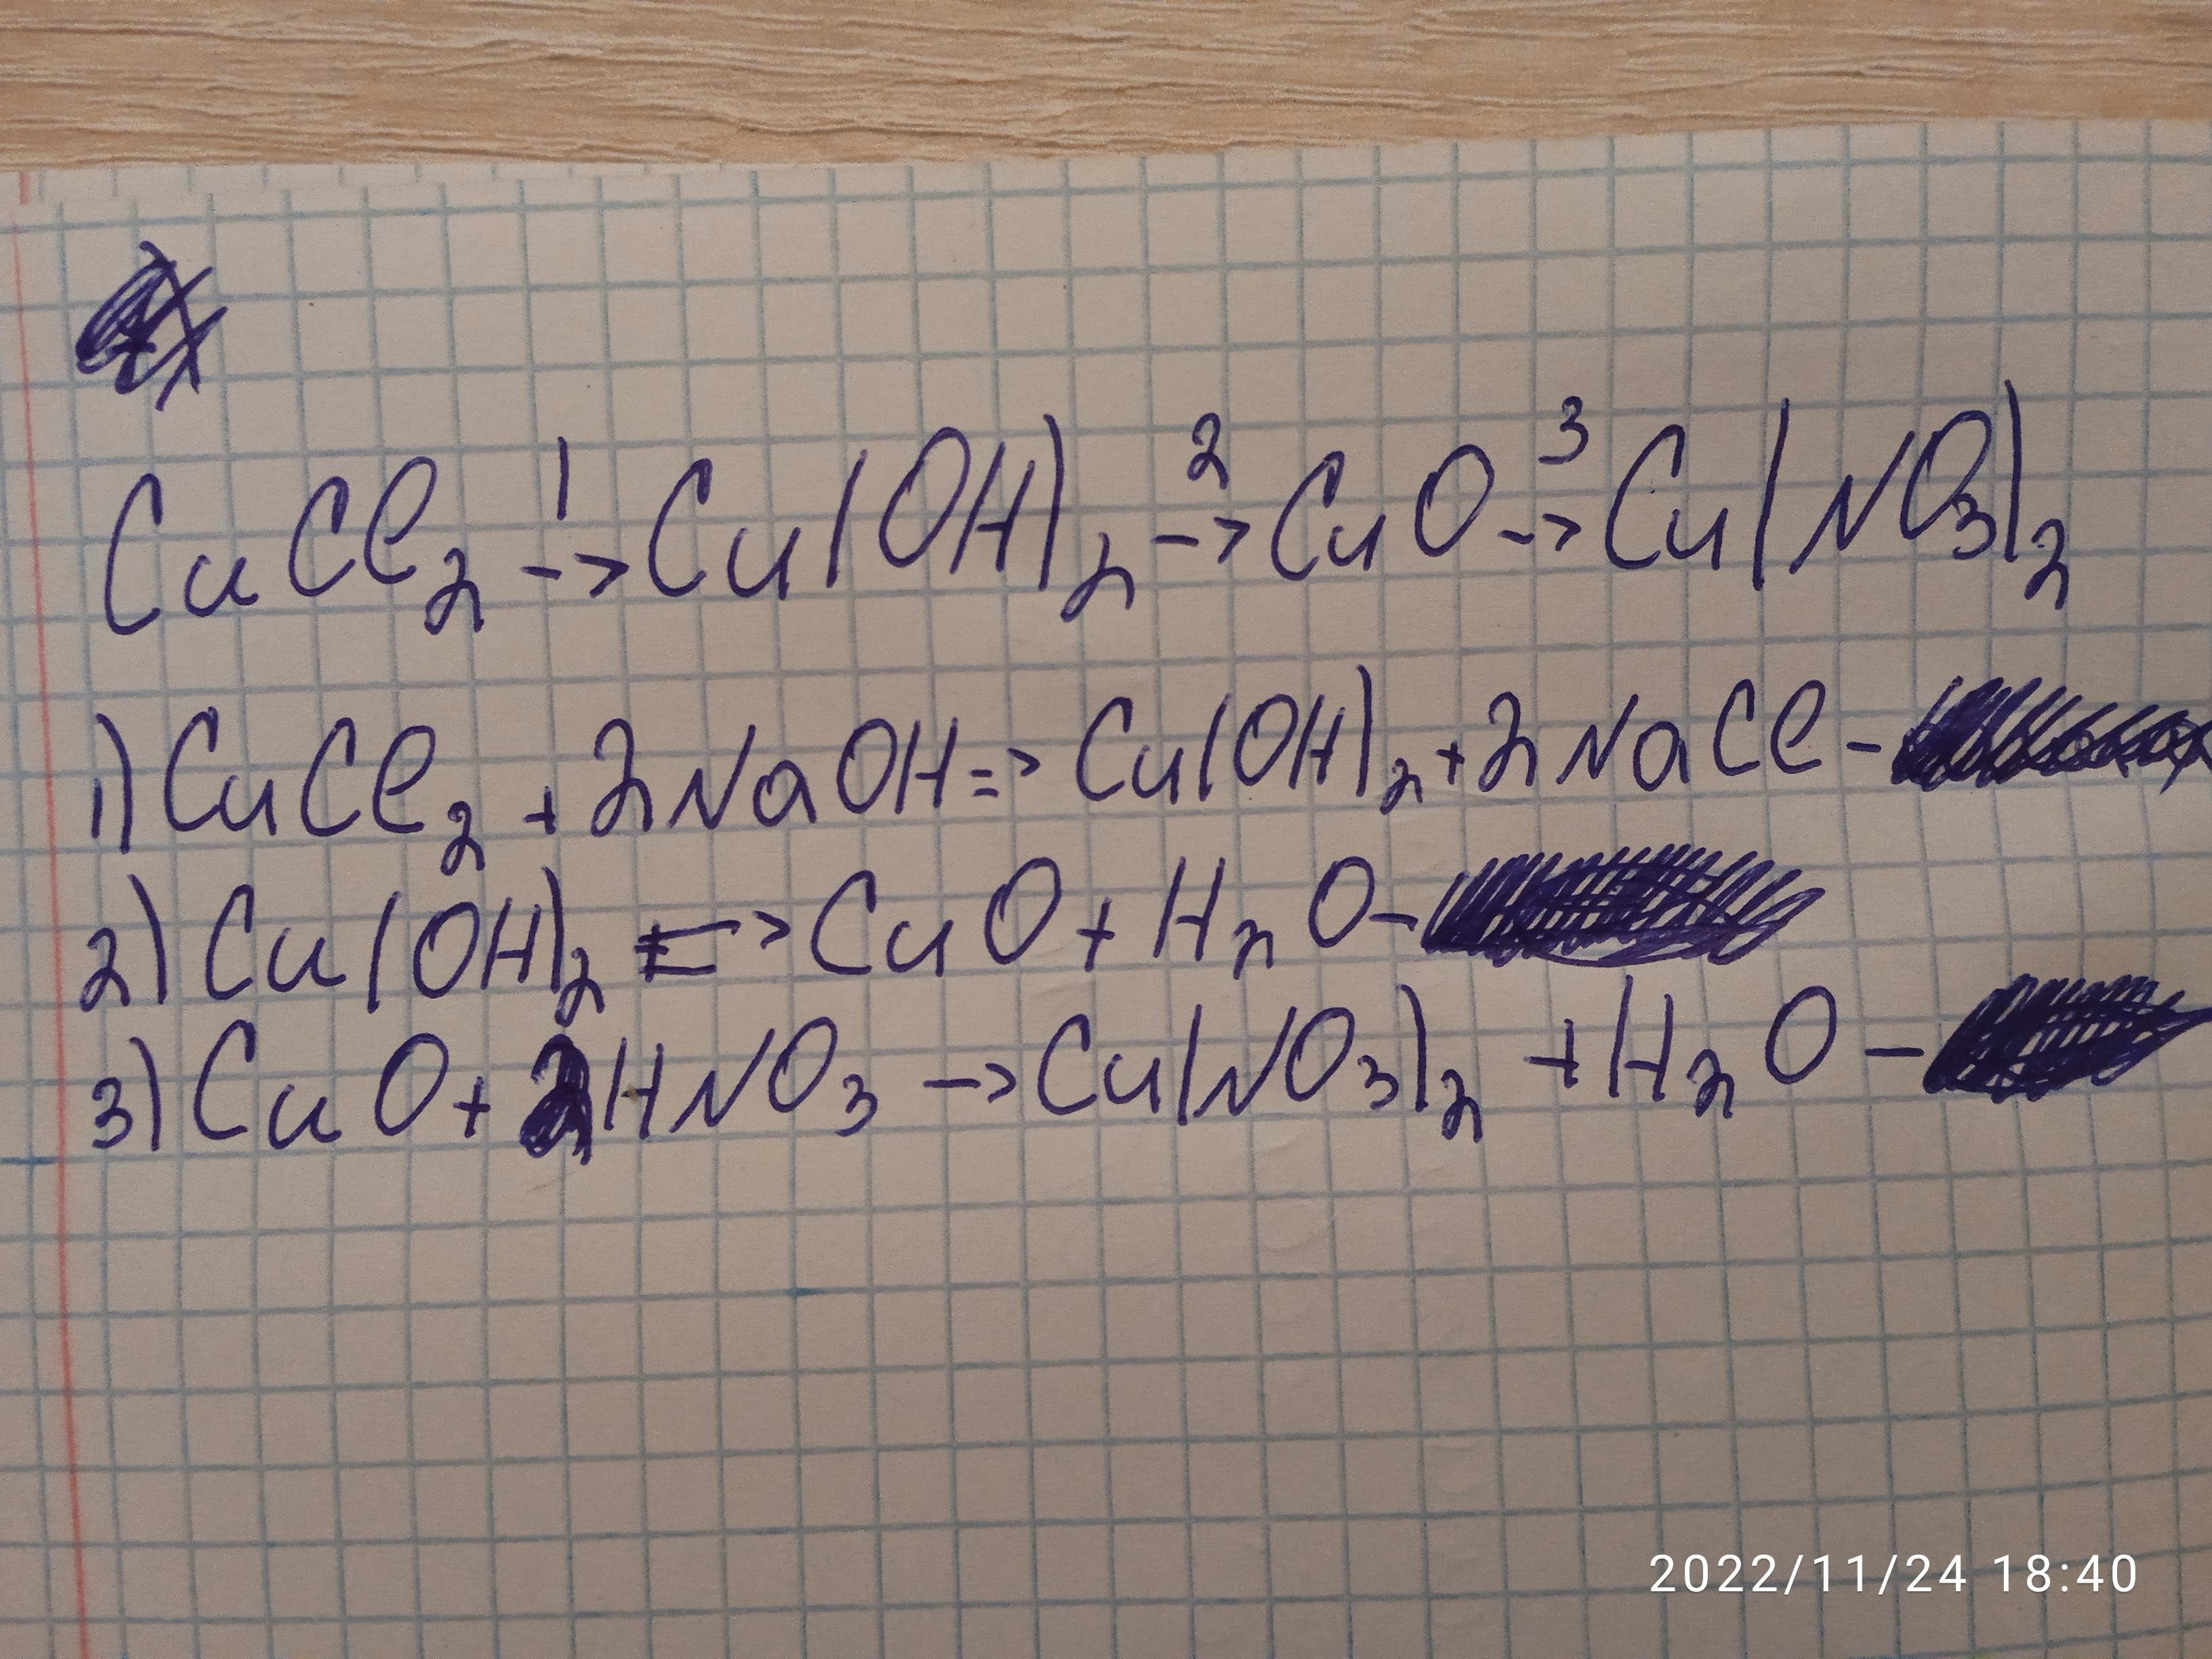 CuCl₂ →¹ Cu(OH)₂ →² CuO →³ Cu(NO₃)₂
1) CuCl₂ + 2NaOH => Cu(OH)₂ + 2NaCl -
2) Cu(OH)₂ => CuO + H₂O -
3) CuO + 2HNO₃ → Cu(NO₃)₂ + H₂O -
2022/11/24 18:40